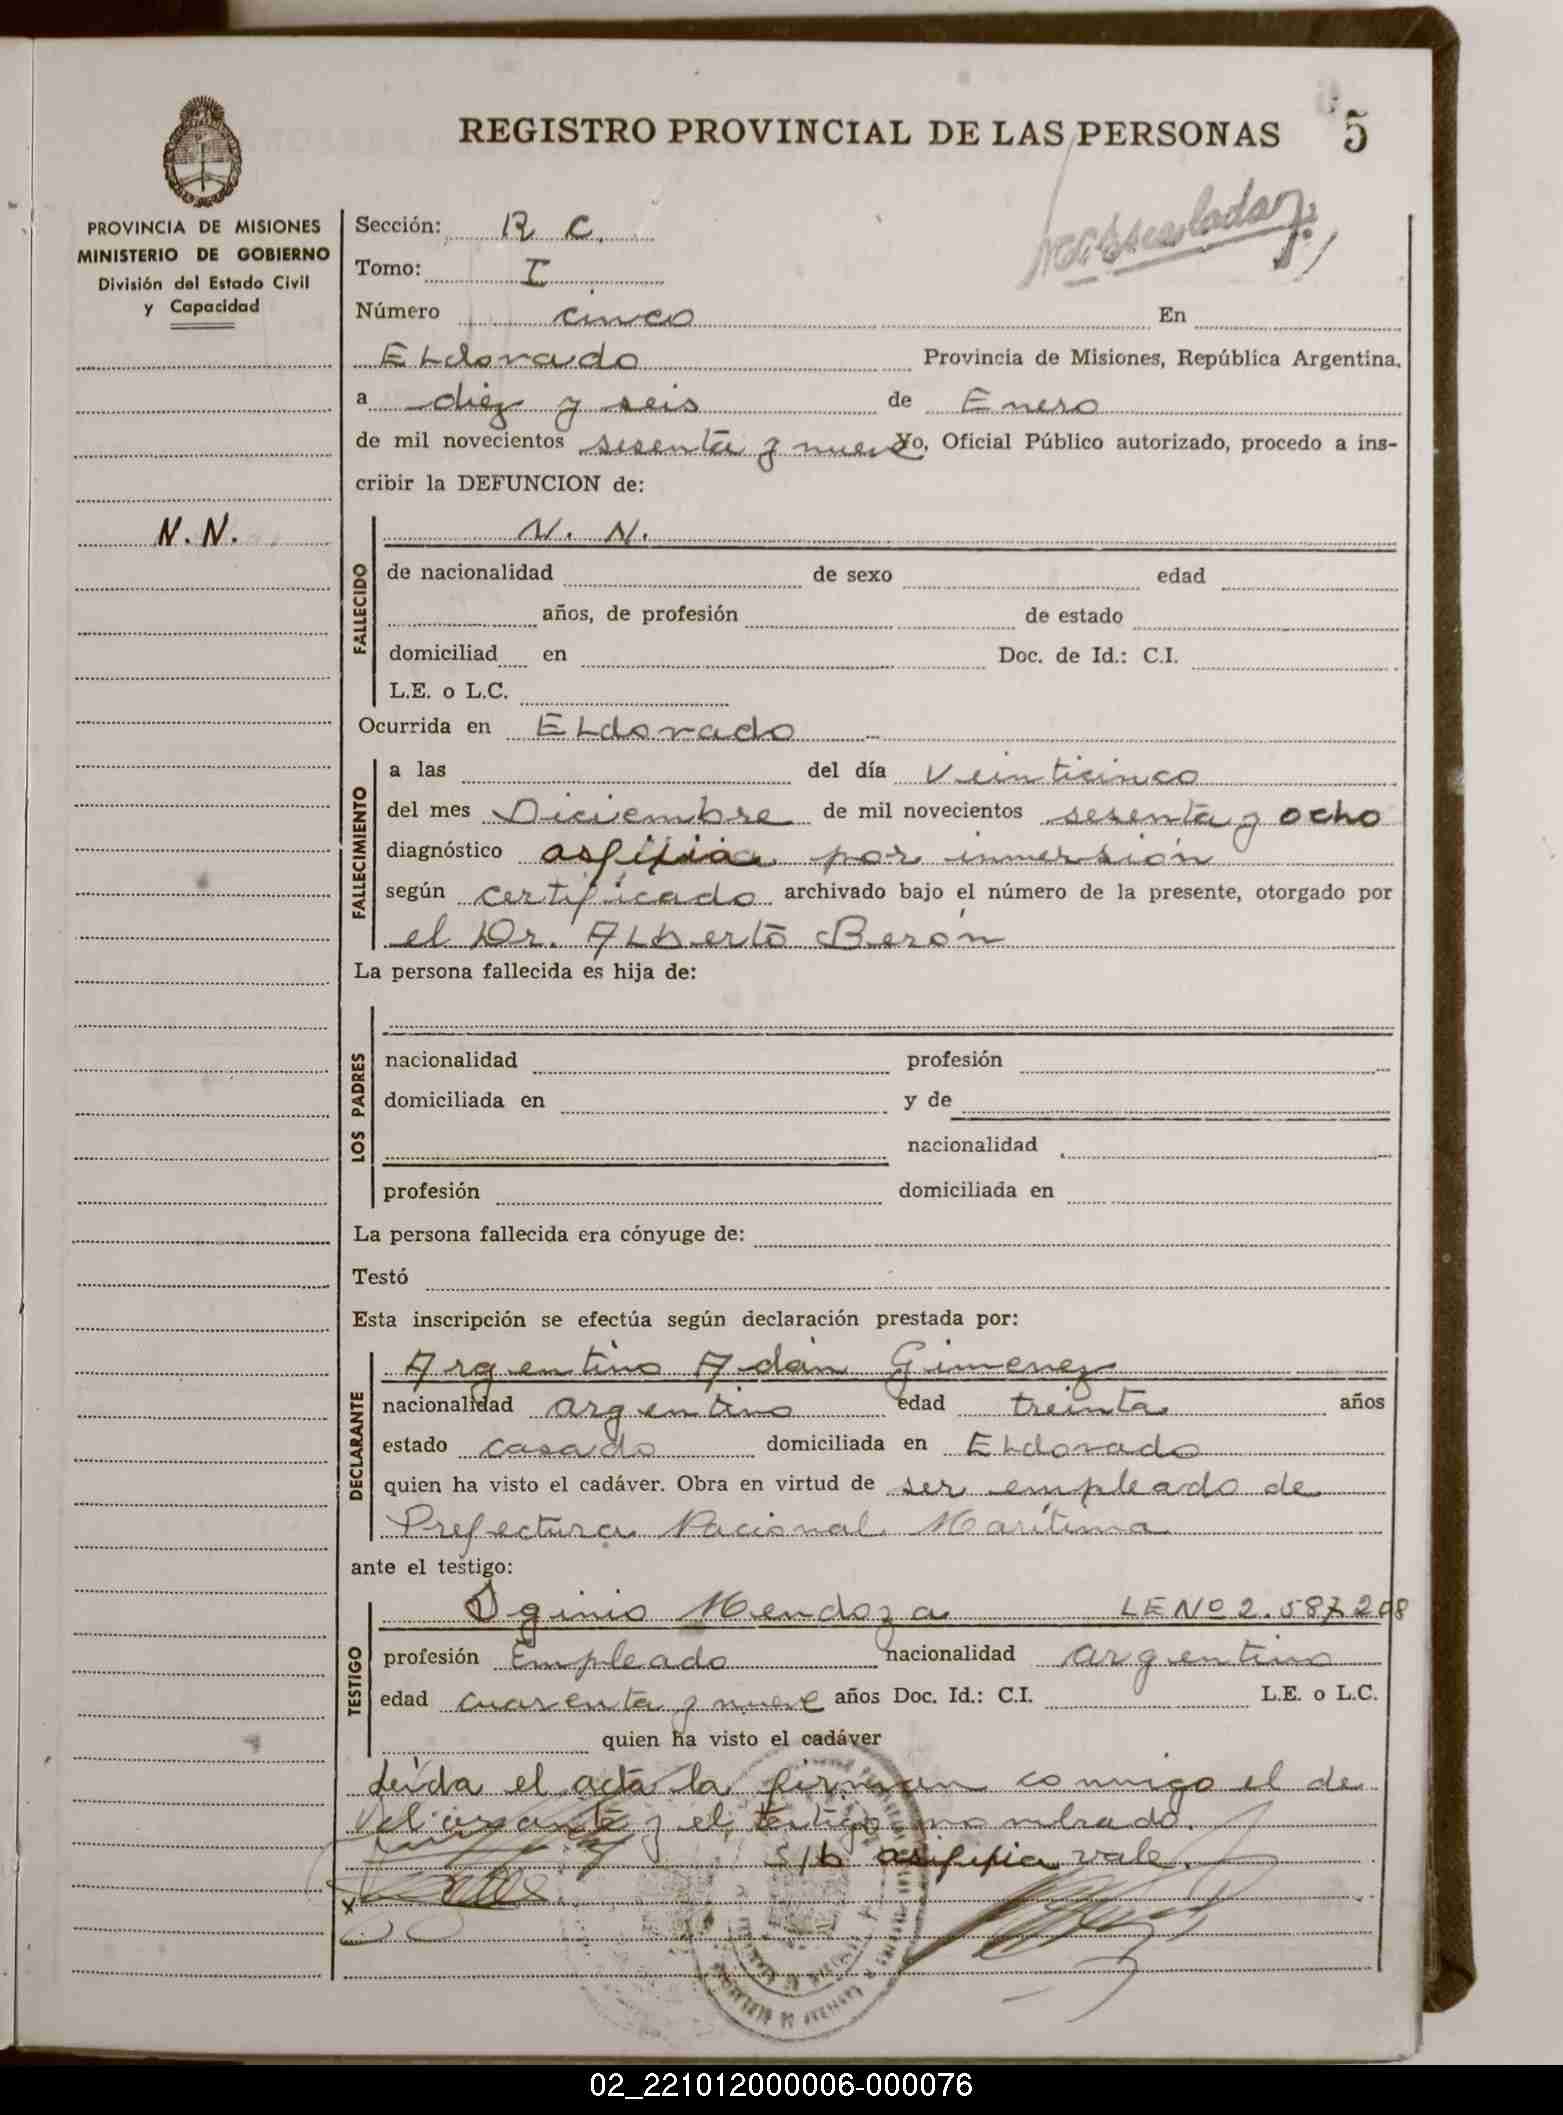 REGISTRO PROVINCIAL DE LAS PERSONAS 5
PROVINCIA DE MISIONES
MINISTERIO DE GOBIERNO
División del Estado Civil
y Capacidad
N. N.
Sección: R C.
Tomo: I
Número cinco En
Eldorado Provincia de Misiones, República Argentina,
a diez y seis de Enero
de mil novecientos sesenta y nueve Yo, Oficial Público autorizado, procedo a ins-
cribir la DEFUNCION de:
FALLECIDO
N. N.
de nacionalidad de sexo edad
años, de profesión de estado
domiciliad en Doc. de Id.: C.I.
L.E. o L.C.
Ocurrida en Eldorado
FALLECIMIENTO
a las del día veinticinco
del mes Diciembre de mil novecientos sesenta y ocho
diagnóstico asfixia por inmersión
según certificado archivado bajo el número de la presente, otorgado por
el Dr. Alberto Berón
La persona fallecida es hija de:
LOS PADRES
nacionalidad profesión
domiciliada en y de
nacionalidad
profesión domiciliada en
La persona fallecida era cónyuge de:
Testó
Esta inscripción se efectúa según declaración prestada por:
DECLARANTE
Argentino Adán Gimenez
nacionalidad argentino edad treinta años
estado casado domiciliada en Eldorado
quien ha visto el cadáver. Obra en virtud de ser empleado de
Prefectura Nacional Marítima
ante el testigo:
TESTIGO
Iginio Mendoza LE Nº 2.587.208
profesión Empleado nacionalidad argentino
edad cuarenta y nueve años Doc. Id.: C.I. L.E. o L.C.
quien ha visto el cadáver
Leída el acta la firman conmigo el de
clarante y el testigo nombrado.
S/b asfixia vale.
02_221012000006-000076